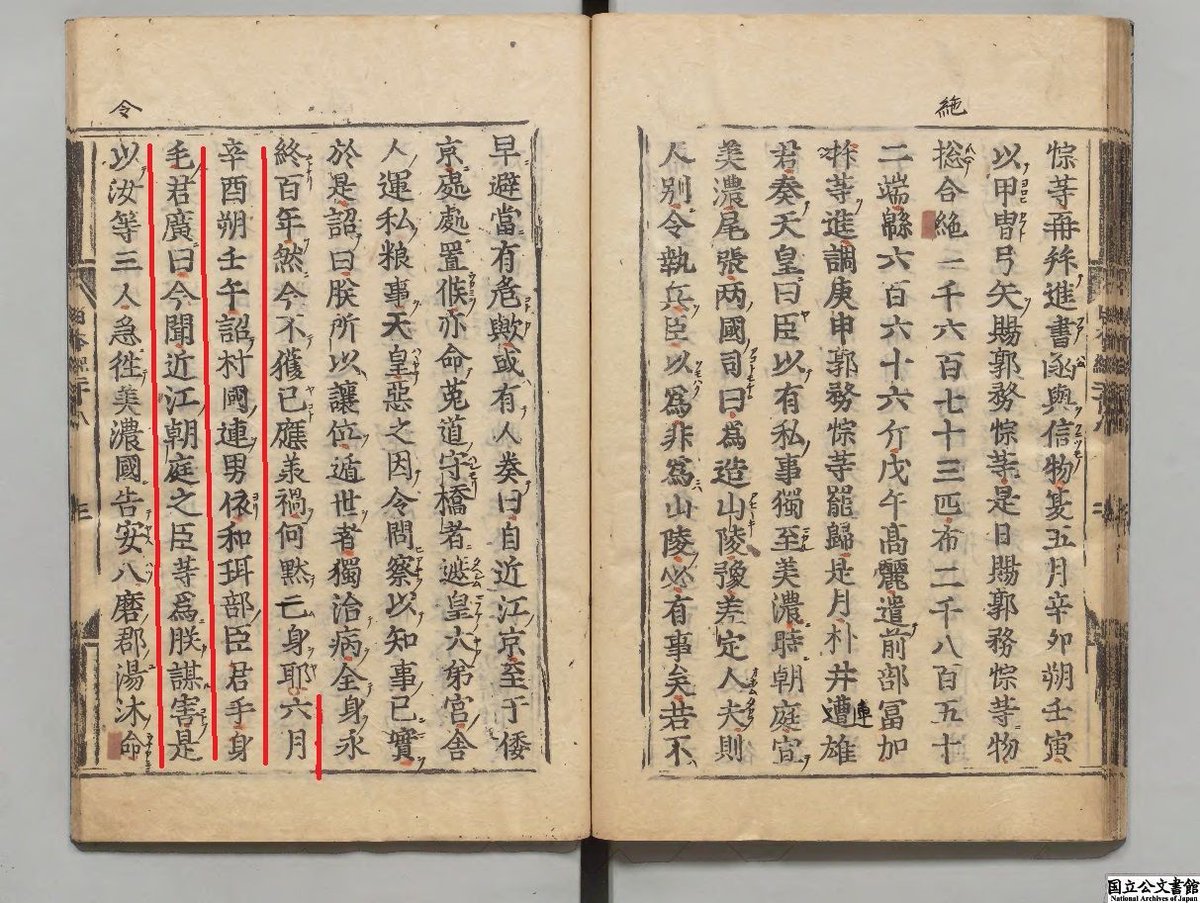 絁
悰等再拜進書函與信物夏五月辛卯朔壬寅
以甲冑弓矢賜郭務悰等是日賜郭務悰等物
捴合絶一千六百七十三匹布二千八百五十
二端緜六百六十六斤戊午高麗遣前部冨加
抃等進調庚申郭務悰等罷歸是月朴井遭雄
連
君奏天皇曰臣以有私事獨至美濃時朝庭宣
美濃尾張两國司曰為造山陵豫差定人夫則
人別令執兵臣以為非為山陵必有事矣若不
令
早避當有危歟或有人奏曰自近江京至于倭
京處處置候亦命菟道守橋者遮皇大弟宮舍
人運私粮事天皇惡之因令問察以知事已實
於是詔曰朕所以讓位遁世者獨治病全身永
終百年然今不獲已應羕禍何黙亡身耶六月
辛酉朔壬午詔村國連男依和珥部臣君手身
毛君廣曰今聞近江朝庭之臣等為朕謀害是
以汝等三人急徃美濃國告安八磨郡湯沐命
国立公文書館
National Archives of Japan